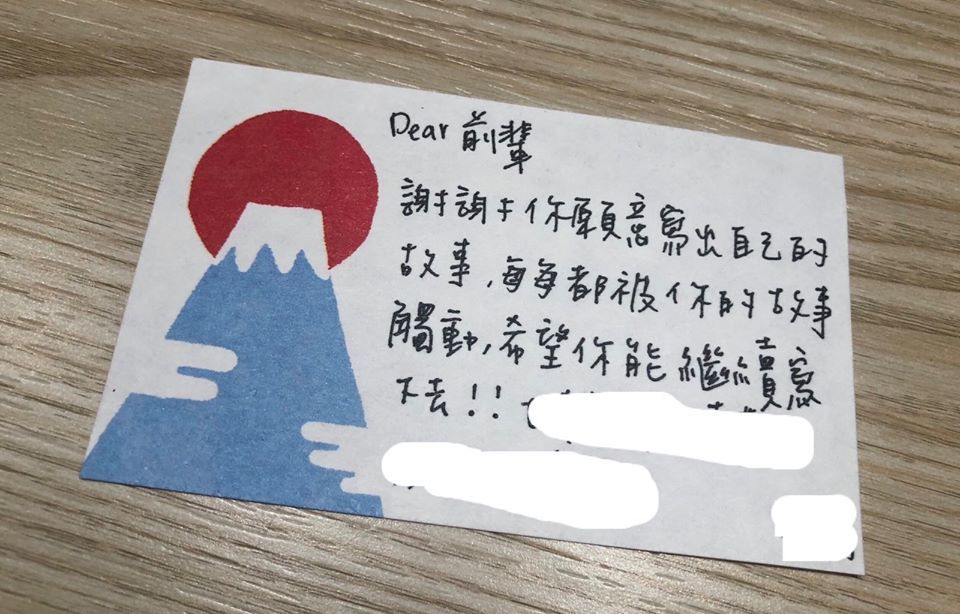 Dear 前輩
謝謝你願意寫出自己的
故事,每每都被你的故事
觸動,希望你能繼續寫
下去!!